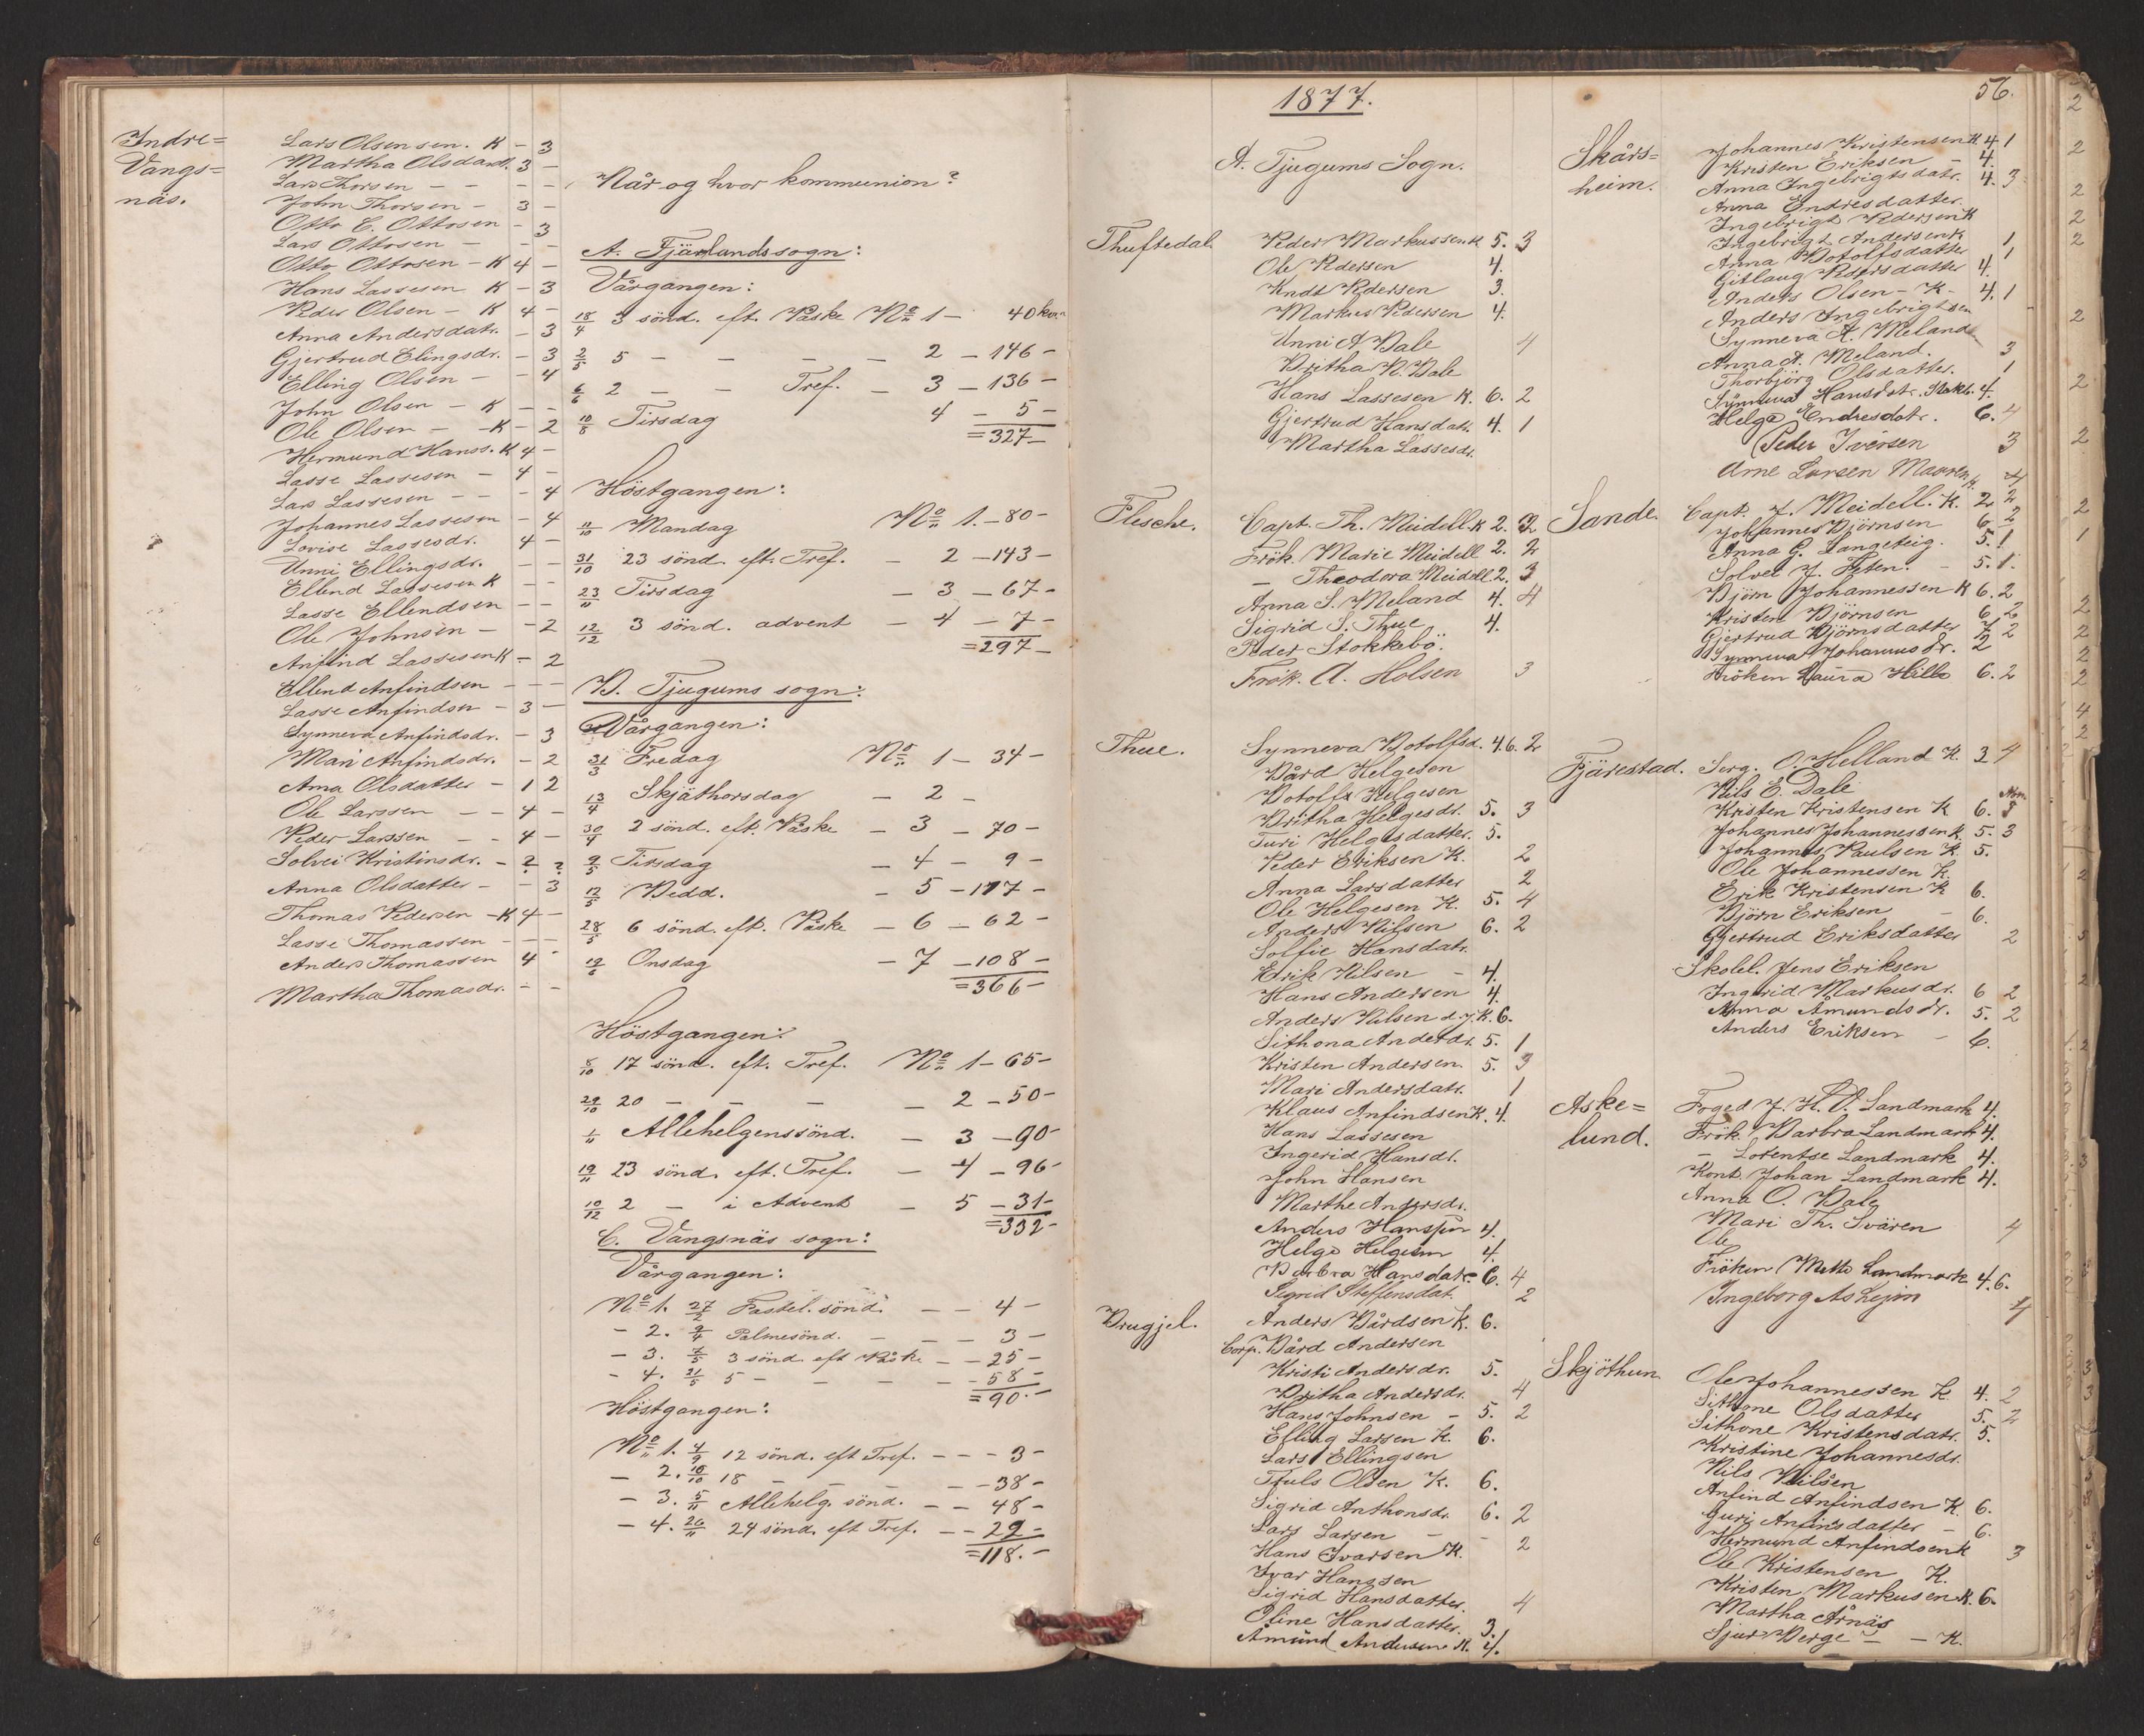 Indre=
Vangs=
näs.
Lars Olsen sen. K - 3
Martha Olsdatt. 3 -
Lars Thorsen - - - -
John Thorsen - 3 -
Otto E. Ottosen - 3
Lars Ottosen - - -
Otto Ottosen - K 4 -
Hans Lassesen K - 3
Peder Olsen - K 4 -
Anna Andersdatr. - 3
Gjertrud Elingsdr. - 3
Elling Olsen - - 4
John Olsen - K - -
Ole Olsen - K - 2
Hermund Hanss. K 4 -
Lasse Lassesen - 4 -
Lars Lassesen - - - 4
Johannes Lassesen - 4
Lovise Lassesdr. 4 -
Unni Ellingsdr. - -
Ellend Lassesen K - -
Lasse Ellendsen - -
Ole Johnsen - - 2
Anfind Lassesen K - 2
Ellend Anfindsen - - -
Lasse Anfindsen - 3 -
Synneva Anfindsdr. - 3
Mari Anfindsdr. - 2
Anna Olsdatter - 1 2
Ole Larssen - - 4 -
Peder Larssen - - 4 -
Solvei Kristinsdr. - 2 2
Anna Olsdatter - - 3
Thomas Pedersen - K 4 -
Lasse Thomassen - - -
Anders Thomassen 4 -
Martha Thomasdr. - -
Når og hvor kommunion?
A. Fjärlandssogn:
Vårgangen:
18/4 3 sönd. eft. Påske No 1 - 40 kom
2/5 5 - - - - 2 - 146 -
6/6 2 - - Tref. - 3 - 136 -
10/8 Tirsdag 4 - 5 -
= 327 -
Höstgangen:
11/10 Mandag No 1. - 80 -
31/10 23 sönd. eft. Tref. - 2 - 143 -
23/11 Tirsdag - 3 - 67 -
12/12 3 sönd. advent - 4 - 7 -
= 297 -
B. Tjugums sogn:
Vårgangen:
31/3 Fredag No 1 - 34 -
13/4 Skjäthorsdag - 2 -
30/4 2 sönd. eft. Påske - 3 - 70 -
9/5 Tirsdag - 4 - 9 -
12/5 Bedd. - 5 - 117 -
28/5 6 sönd. eft. Påske - 6 - 62 -
19/6 Onsdag - 7 - 108 -
= 366 -
Höstgangen:
8/10 17 sönd. eft. Tref. No 1 - 65 -
29/10 20 - - - - 2 - 50 -
1/11 Allehelgenssönd. - 3 - 90 -
19/11 23 sönd. eft. Tref. - 4 - 96 -
10/12 2 - i Advent - 5 - 31 -
= 332 -
C. Vangsnäs sogn:
Vårgangen:
No 1. 27/2 Fastel. sönd. - - 4 -
- 2. 9/4 Palmesönd. - - - 3 -
- 3. 7/5 3 sönd. eft Påske - - 25 -
- 4. 21/5 5 - - - - - 58 -
= 90. -
Höstgangen:
No 1. 4/9 12 sönd. eft Tref. - - - 3 -
- 2. 15/10 18 - - - - - 38 -
- 3. 5/11 Allehelg. sönd. - - 48 -
- 4. 26/11 24 sönd. eft Tref. - - 29 -
= 118. -
1877.
A. Tjugums Sogn.
Thuftedal.
Peder Markussen K. 5. 3
Ole Pedersen 4.
Kndt Pedersen 3.
Markus Pedersen 4.
Unni A Bale 4
Britha N. Bale
Hans Lassesen K. 6. 2
Gjertrud Hansdatr. 4. 1
Martha Lassesdr.
Flesche.
Capt. Th. Meidell K 2. 2
Frök. Marie Meidell 2. 2
- Theodora Meidell 2. 3
Anna S. Meland 4. 4
Sigrid S. Thue 4.
Peder Stokkebö.
Frök. A. Holsen 3
Thue.
Synneva Botolfsd. 4.6. 2
Bård Helgesen
Botolf Helgesen
Britha Helgesdr. 5. 3
Turi Helgesdatter. 5.
Peder Eriksen K. 2
Anna Larsdatter 2
Ole Helgesen K. 5. 4
Anders Nilsen 6. 2
Solfie Hansdatr.
Erik Nilsen - 4.
Hans Andersen 4.
Anders Nilsen d. y. K. 6.
Sithona Andersdr. 5. 1
Kristen Andersen. 5. 3
Mari Andersdatr. 1
Klaus Anfindsen K. 4.
Hans Lassesen
Ingerid Hansdr.
John Hansen
Marthe Andersdr.
Anders Hanssen 4.
Helge Helgesen 4.
Barbra Hansdatr. 6. 4
Sigrid Steffensdat. 2
Drugjel.
Anders Bårdsen K. 6.
Corp. Bård Andersen
Kristi Andersdr. 5.
Britha Andersdr. 4
Hans Johnsen - 5. 2
Elling Larsen K. 6.
Lars Ellingsen
Truls Olsen K. 6.
Sigrid Anthonsdr. 6. 2
Lars Larsen - -
Hans Ivarsen K. 2
Ivar Hanssen
Sigrid Hansdatter. 4
Oline Hansdatter. 3.
Amund Andersen K. 4.
56.
Skårs=
heim.
Johannes Kristensen K 4. 1
Kristen Eriksen - 4.
Anna Ingebrigtsdatr. 4. 3
Anna Endresdatter.
Ingebrigt Pedersen K
Ingebrigt Andersen K 1
Anna Botolfsdatter 1
Gitlaug Pedersdatter 4.
Anders Olsen - K - 4. 1
Anders Ingebrigtsen
Synneva A. Meland
Anna A. Meland. 3
Thorbjörg Olsdatter. 1
Synneva Hansdatr. Stokb. 4.
Helge Endresdatr. 6. 4
Peder Iversen 3
Arne Larsen K. 4
Sande.
Capt. J. Meidell. K. 2 2
Johannes Björnsen 6 2
Anna G. Langeteig. 5. 1
Solvei J. - 5. 1.
Björn Johannessen K 6. 2
Kristen Björnsen 6 2
Gjertrud Björnsdatter 7 2
Synneva Johannesdr. 2
Fröken Laura Hille 6. 2
Fjärestad.
Serg. O. Helland K. 3 4
Nils E. Dale
Kristen Kristensen K 6. 8
Johannes Johannessen K. 5. 3
Johannes Paulsen K. 5.
Ole Johannessen K.
Erik Kristensen K 6.
Björn Eriksen - 6.
Gjertrud Eriksdatter 2
Skolel. Jens Eriksen
Ingerid Markusdr. 6 2
Anna Amundsdr. 5. 2
Anders Eriksen - 6.
Aske=
lund.
Foged J. H. V. Landmark 4.
Frök. Barbra Landmark 4.
- Lorentse Landmark 4.
Kont. Johan Landmark 4.
Anna O. Bale
Mari Th. Svären 4
Ole
Fröken Mette Landmark 4.6.
Ingeborg 4
Skjöthun
Ole Johannessen K. 4. 2
Sithone Olsdatter 5. 2
Sithone Kristensdatr. 5.
Kristine Johannesdr.
Nils Nilsen
Anfind Anfindsen K. 6.
Guri Anfinsdatter - 6.
Hermund Anfindsen K 3
Ole Kristensen K.
Kristen Markusen K. 6.
Martha Årnäs
Sjur Berge - - K.